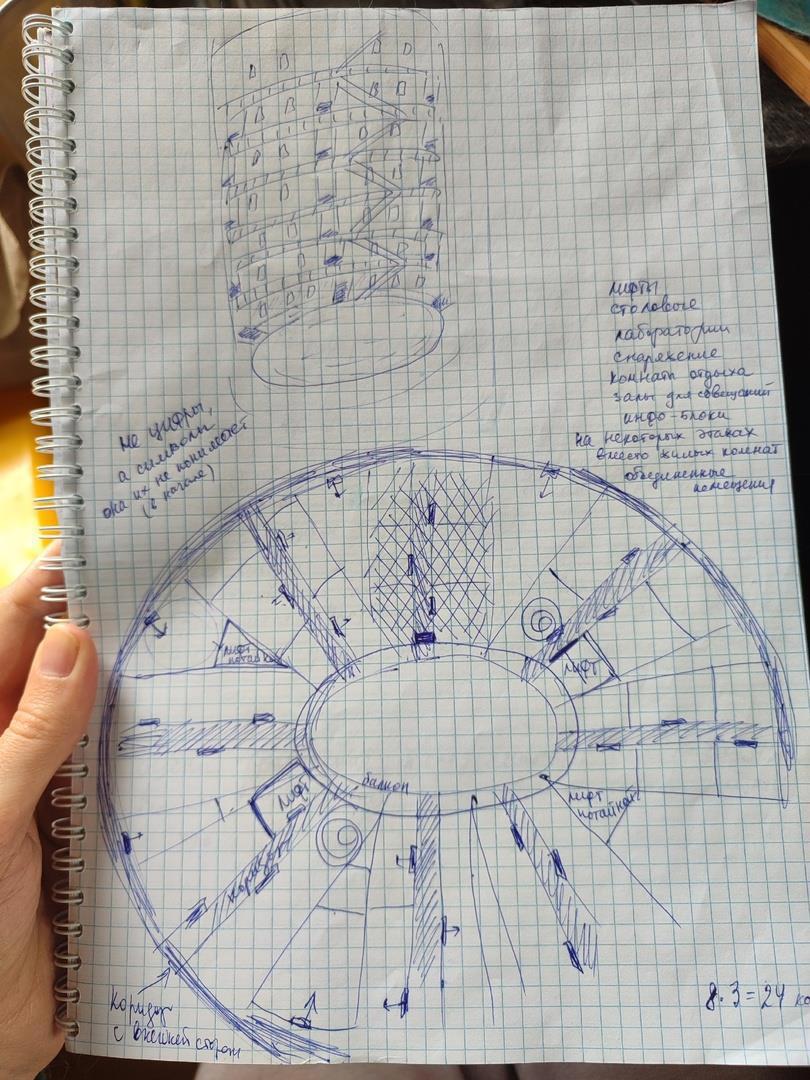 лифты
столовые
лаборатории
снаряжение
комнаты отдыха
залы для совещаний
инфо-блоки
на некоторых этажах
вместо жилых комнат
объединенные
помещения
не цифры,
а символы
она их не понимает
(в начале)
лифт
потайной
лифт
балкон
лифт
лифт
потайной
коридор
Коридор
с внешней стороны
8·3=24